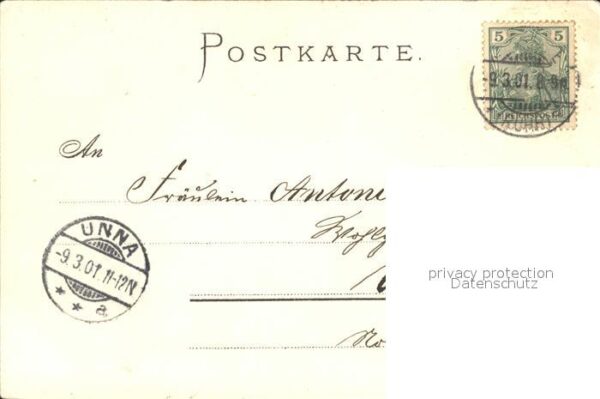 POSTKARTE.
5 5
-9.3.01. 8-9
An
Fräulein Antoni
Wohlg
UNNA
-9.3.01. 11-12N
* * a
No.
privacy protection
Datenschutz